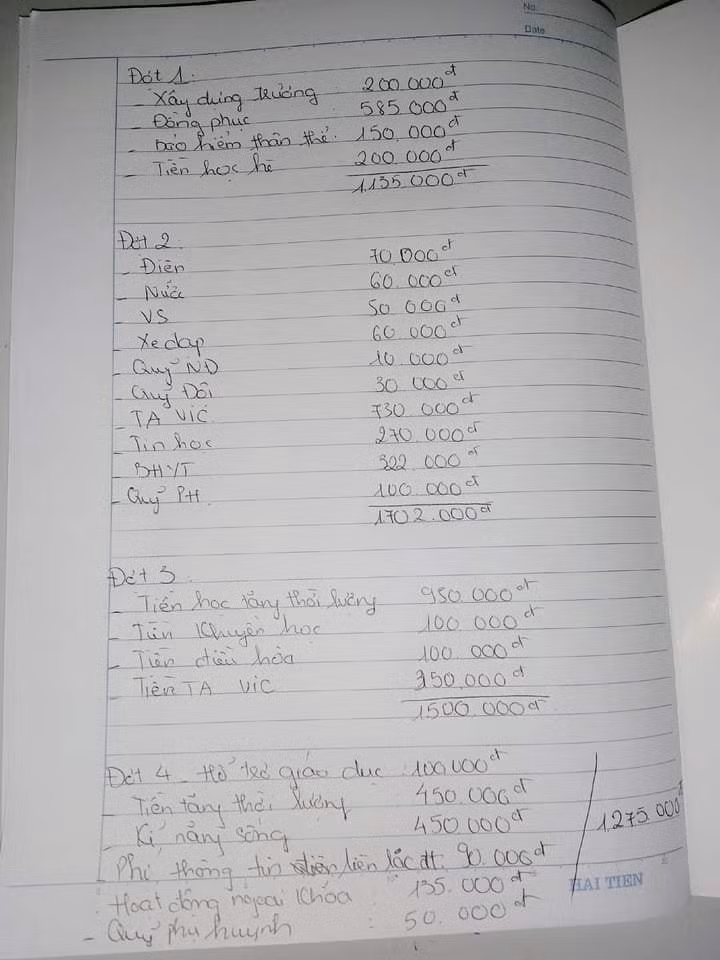 No.
Date
Đợt 1.
- Xây dựng trường 200.000đ
- Đồng phục 585.000đ
- bảo hiểm thân thể. 150.000đ
- Tiền học hè 200.000đ
1.135.000đ
Đợt 2.
- Điện 70.000đ
- Nước 60.000đ
- VS 50.000đ
- Xe đạp 60.000đ
- Quỹ NĐ 10.000đ
- Quỹ Đội 30.000đ
- TA VIC 730.000đ
- Tin học 270.000đ
- BHYT 322.000đ
- Quỹ PH 100.000đ
1702.000đ
Đợt 3
- Tiền học tăng thời lượng 950.000đ
- Tiền Khuyến học 100.000đ
- Tiền điều hòa 100.000đ
- Tiền TA VIC 350.000đ
1500.000đ
Đợt 4 - Hỗ trợ giáo dục 100.000đ
- Tiền tăng thời lượng 450.000đ
- Kĩ năng sống 450.000đ
- Phí thông tin liên lắc đt: 90.000đ
1.275.000đ
: Hoạt động ngoại khóa : 135.000đ
- Quỹ phụ huynh : 50.000đ
HAI TIEN